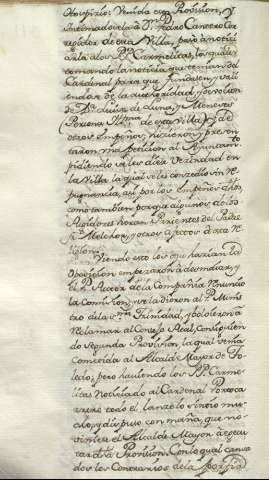 Hospicio: Venida esta Provision, y
a Dn. Pedro Cantero Cor
regidor de esta Villa, pasó a notifi
carla a los PP. Carmelitas, los quales
tomando la noticia que tenian del
Cardenal para que fundasen, y va
liendose de la autoridad, y devocion
de Dn. Luis de Luna, y Meneses
(Persona Illma. de esta Villa) y de
otros Empeños, hicieron y presen
taron una peticion al Ayuntamto.
pidiendo se les diese vezindad en
la Villa la qual se les concedio sin re
pugnancia, asi por los Empeños dhos,
como tambien porque algunos de los
Regidores heran Parientes del Padre
Fr. Melchor, y otros afectos a esta Re
ligion.
Viendo esto los que hacian la
Oposicion empezaron a desmaiar, y
el P. Rector de la Compañia renunció
la Comision, y se la dieron al P. Minis
tro de la Sma. Trinidad, y volvieron a
reclamar al Consejo Real, consiguien
do segunda Provision la qual venia
cometida al Alcalde Mayor de To
ledo; pero haviendo los PP. Carme
litas noticiado al Cardenal Portoca
rrero todo el lance lo sintió mu
cho, y dispuso con maña, que no
viniese el Alcalde Mayor a execu
tar dha Provision. Con lo qual cansa
dos los Contrarios de la porfia